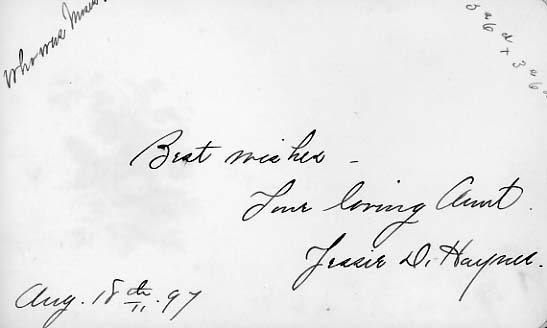 who was
Best wishes -
Your loving Aunt.
Jessie D. Haynes.
Aug. 18th 11. 97